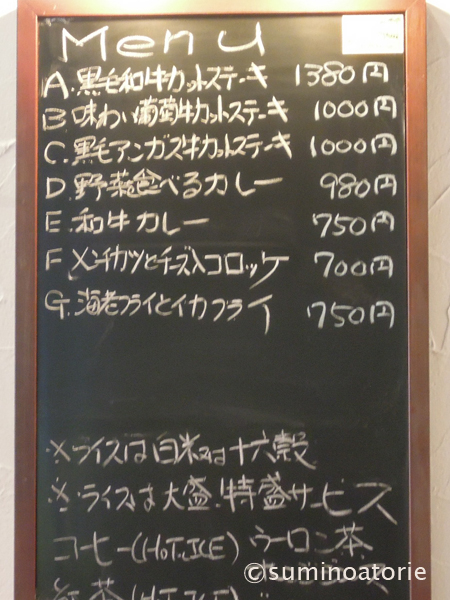 Menu
A.黒毛和牛カットステーキ 1380円
B.味わい葡萄牛カットステーキ 1000円
C.黒毛アンガス牛カットステーキ 1000円
D.野菜食べるカレー 980円
E.和牛カレー 750円
F.メンチカツとチーズ入コロッケ 700円
G.海老フライとイカフライ 750円
※ライスは白米又は十六穀
※ライスは大盛!特盛サービス
コーヒー(HOT.ICE) ウーロン茶
紅茶(HOT.ICE)
©suminoatorie